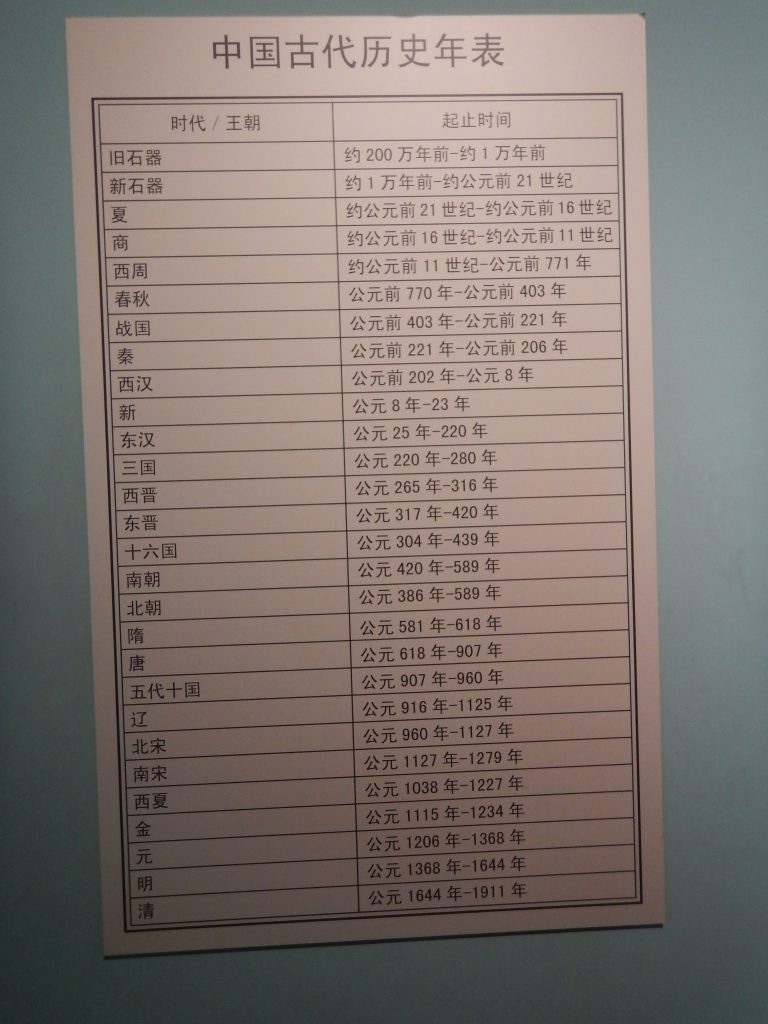 中国古代历史年表
时代 / 王朝 起止时间
旧石器 约 200 万年前-约 1 万年前
新石器 约 1 万年前-约公元前 21 世纪
夏 约公元前 21 世纪-约公元前 16 世纪
商 约公元前 16 世纪-约公元前 11 世纪
西周 约公元前 11 世纪-公元前 771 年
春秋 公元前 770 年-公元前 403 年
战国 公元前 403 年-公元前 221 年
秦 公元前 221 年-公元前 206 年
西汉 公元前 202 年-公元 8 年
新 公元 8 年-23 年
东汉 公元 25 年-220 年
三国 公元 220 年-280 年
西晋 公元 265 年-316 年
东晋 公元 317 年-420 年
十六国 公元 304 年-439 年
南朝 公元 420 年-589 年
北朝 公元 386 年-589 年
隋 公元 581 年-618 年
唐 公元 618 年-907 年
五代十国 公元 907 年-960 年
辽 公元 916 年-1125 年
北宋 公元 960 年-1127 年
南宋 公元 1127 年-1279 年
西夏 公元 1038 年-1227 年
金 公元 1115 年-1234 年
元 公元 1206 年-1368 年
明 公元 1368 年-1644 年
清 公元 1644 年-1911 年